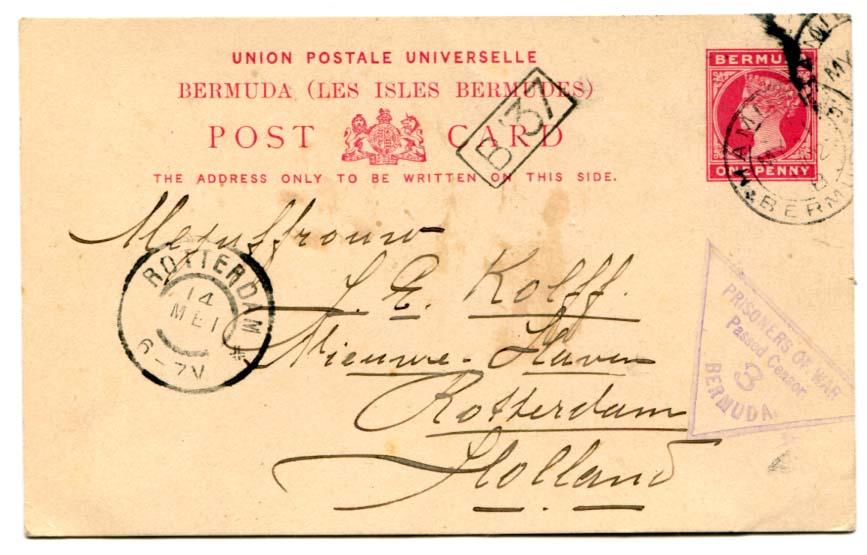 UNION POSTALE UNIVERSELLE
BERMUDA (LES ISLES BERMUDES)
POST CARD
THE ADDRESS ONLY TO BE WRITTEN ON THIS SIDE.
BERMUDA
ONE PENNY
B 37
HAM
BERMU
Mejuffrouw
J. E. Kolff.
Nieuwe-Haven
Rotterdam
Holland
ROTTERDAM *
14
MEI
6-7V
PRISONERS OF WAR
Passed Censor
3
BERMUDA